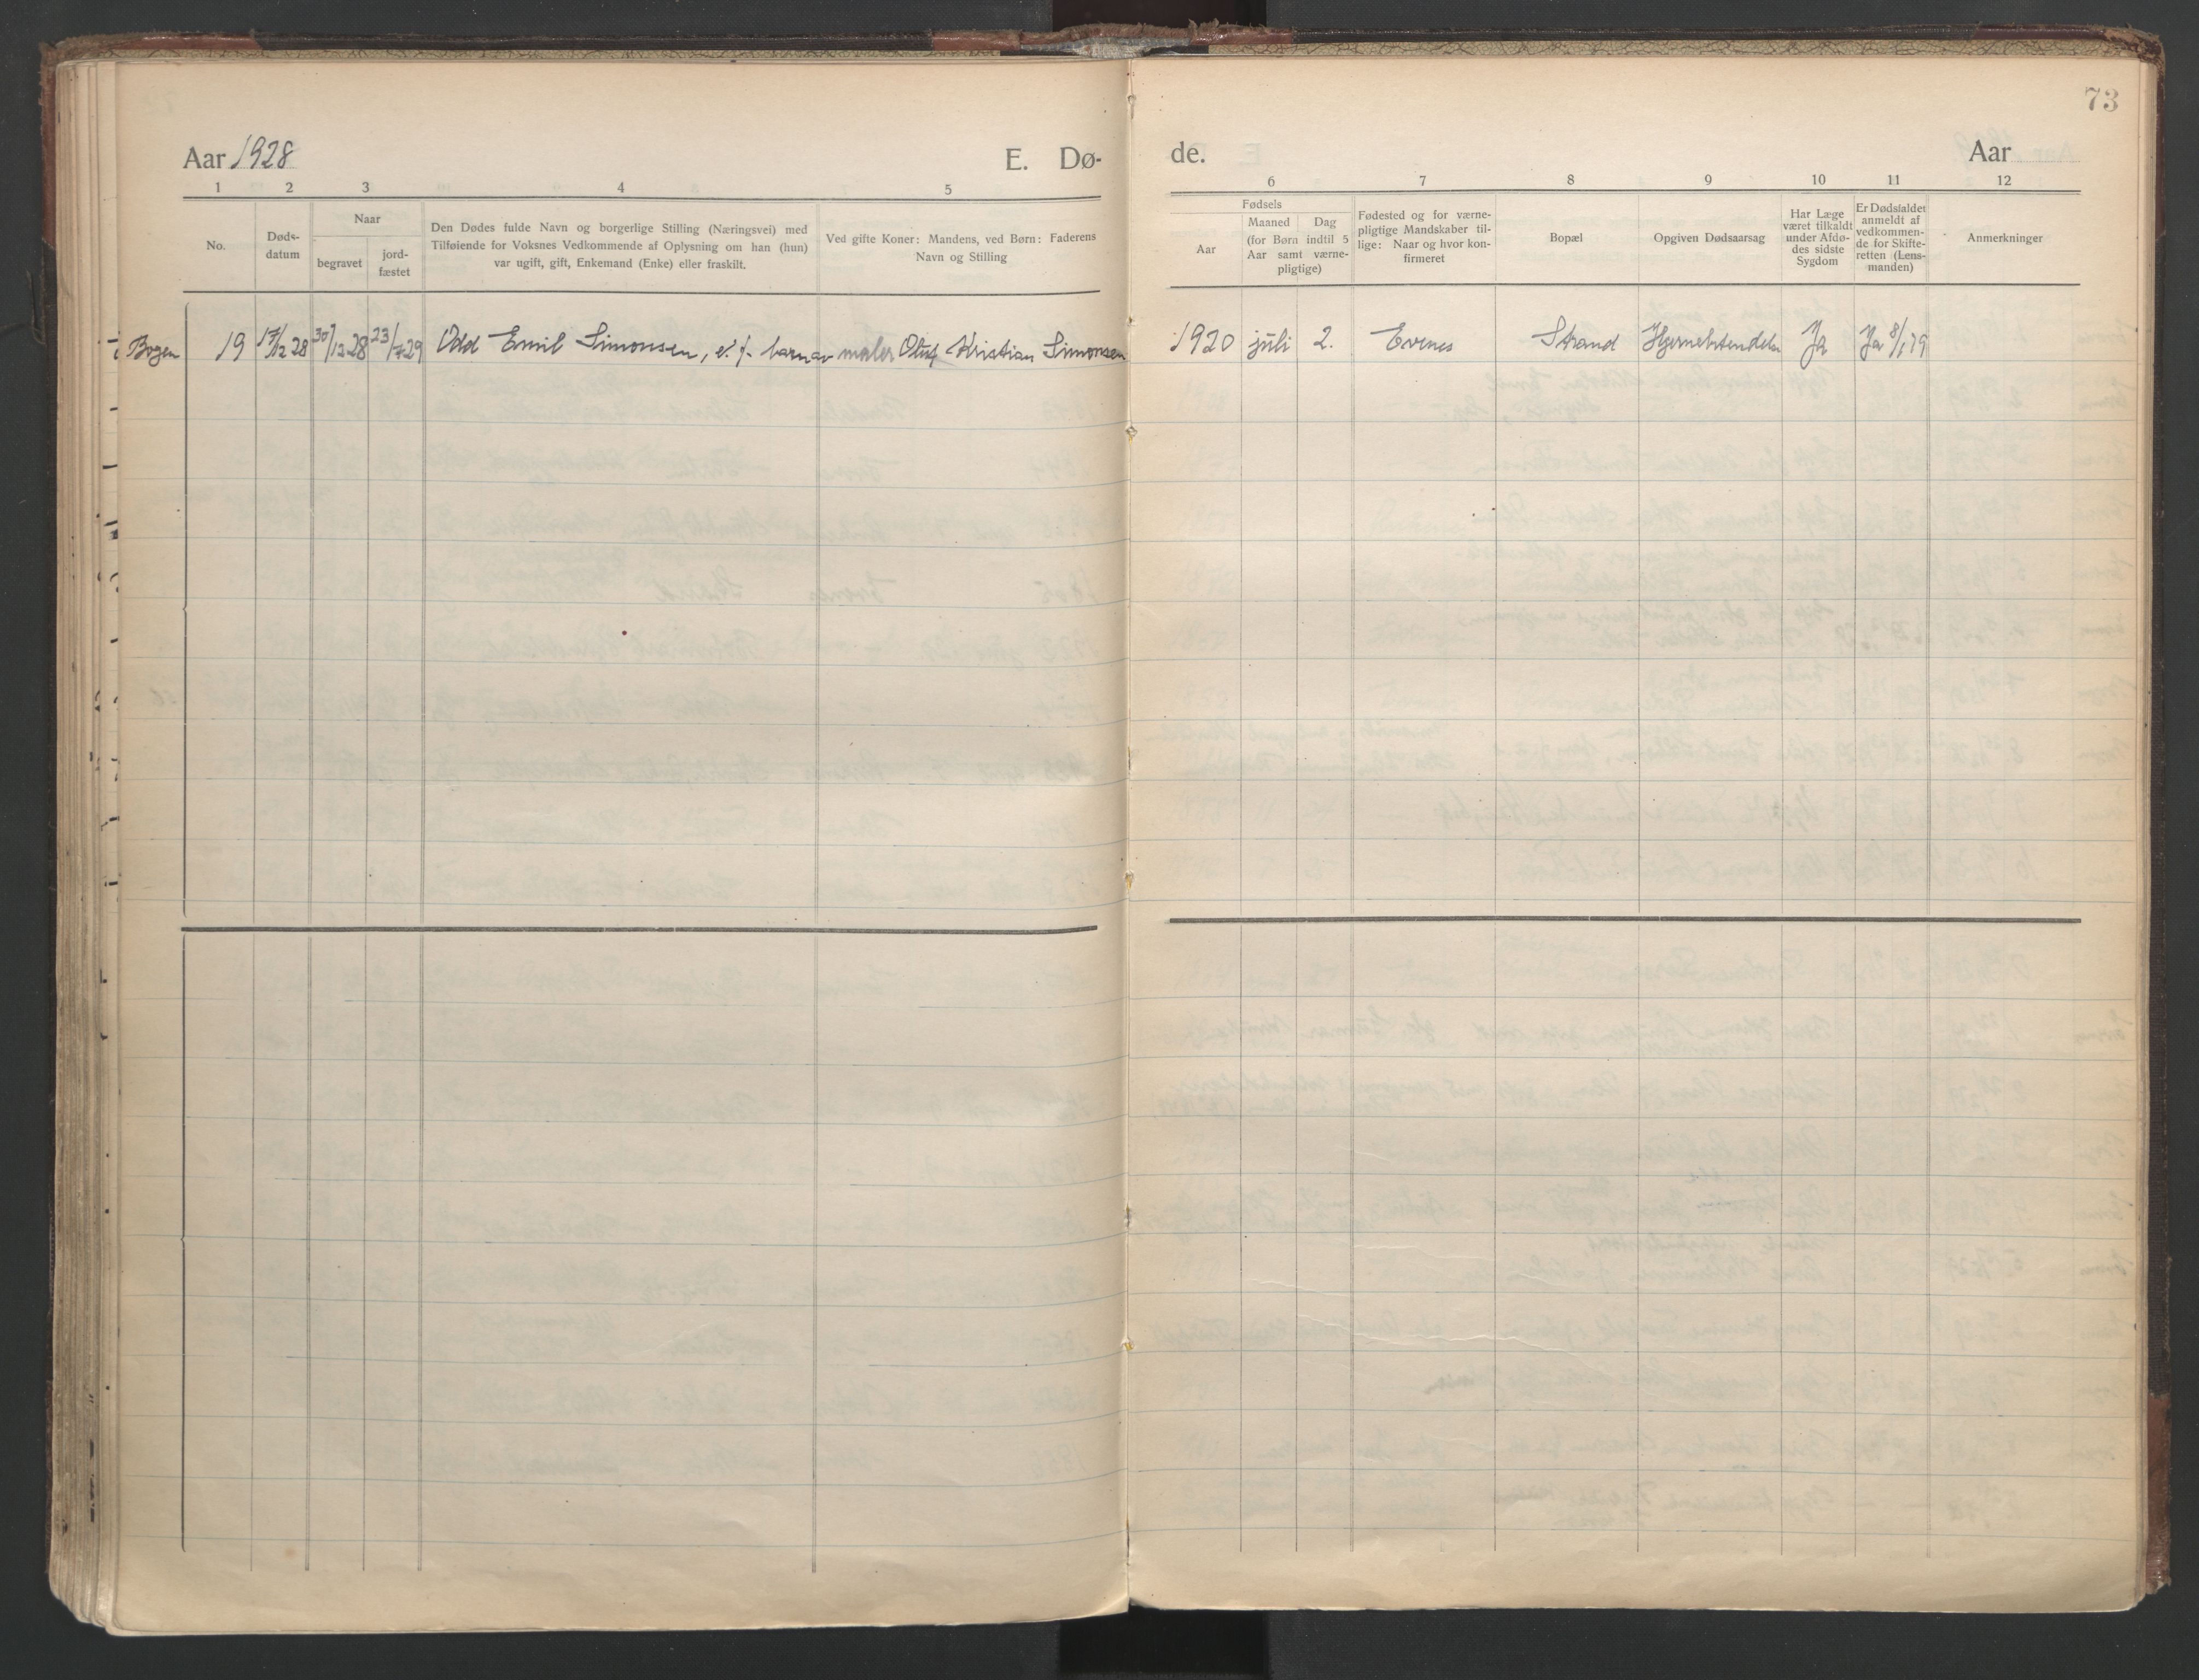 73
Aar 1928
E. Dø-
de.
Aar
1 2 3 4 5
6 7 8 9 10 11 12
No.
Døds-
datum
Naar
begravet
jord-
fæstet
Den Dødes fulde Navn og borgerlige Stilling (Næringsvei) med
Tilføiende for Voksnes Vedkommende af Oplysning om han (hun)
var ugift, gift, Enkemand (Enke) eller fraskilt.
Ved gifte Koner: Mandens, ved Børn: Faderens
Navn og Stilling
Fødsels
Aar
Maaned Dag
(for Børn indtil 5
Aar samt værne-
pligtige)
Fødested og for værne-
pligtige Mandskaber til-
lige: Naar og hvor kon-
firmeret
Bopæl
Opgiven Dødsaarsag
Har Læge
været tilkaldt
under Afdø-
des sidste
Sygdom
Er Dødsfaldet
anmeldt af
vedkommen-
de for Skifte-
retten (Lens-
manden)
Anmerkninger
Bogen 19 17/12 28 30/12 28 23/4 29 Odd Emil Simonsen, e. f. barn av maler Oluf Kristian Simonsen 1920 juli 2. Evenes Strand Hjernebetendelse Ja Ja 8/1 29